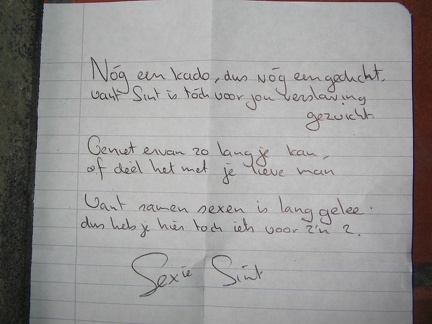 Nóg een kado, dus nóg een gedicht.
want Sint is tóch voor jou verslaving
gezwicht.
Geniet ervan zo lang je kan,
of deel het met je lieve man
Want samen sexen is lang gelee.
dus heb je hier toch iets voor z'n 2.
Sexie Sint